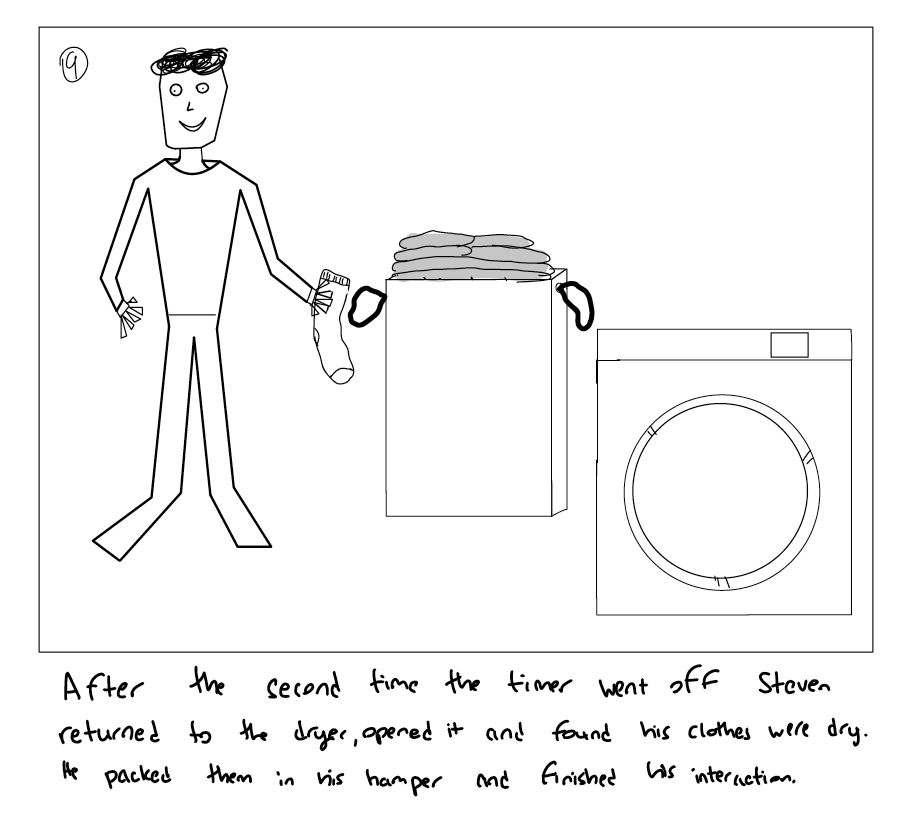 9
After the second time the timer went off Steven
returned to the dryer, opened it and found his clothes were dry.
He packed them in his hamper and finished his interaction.